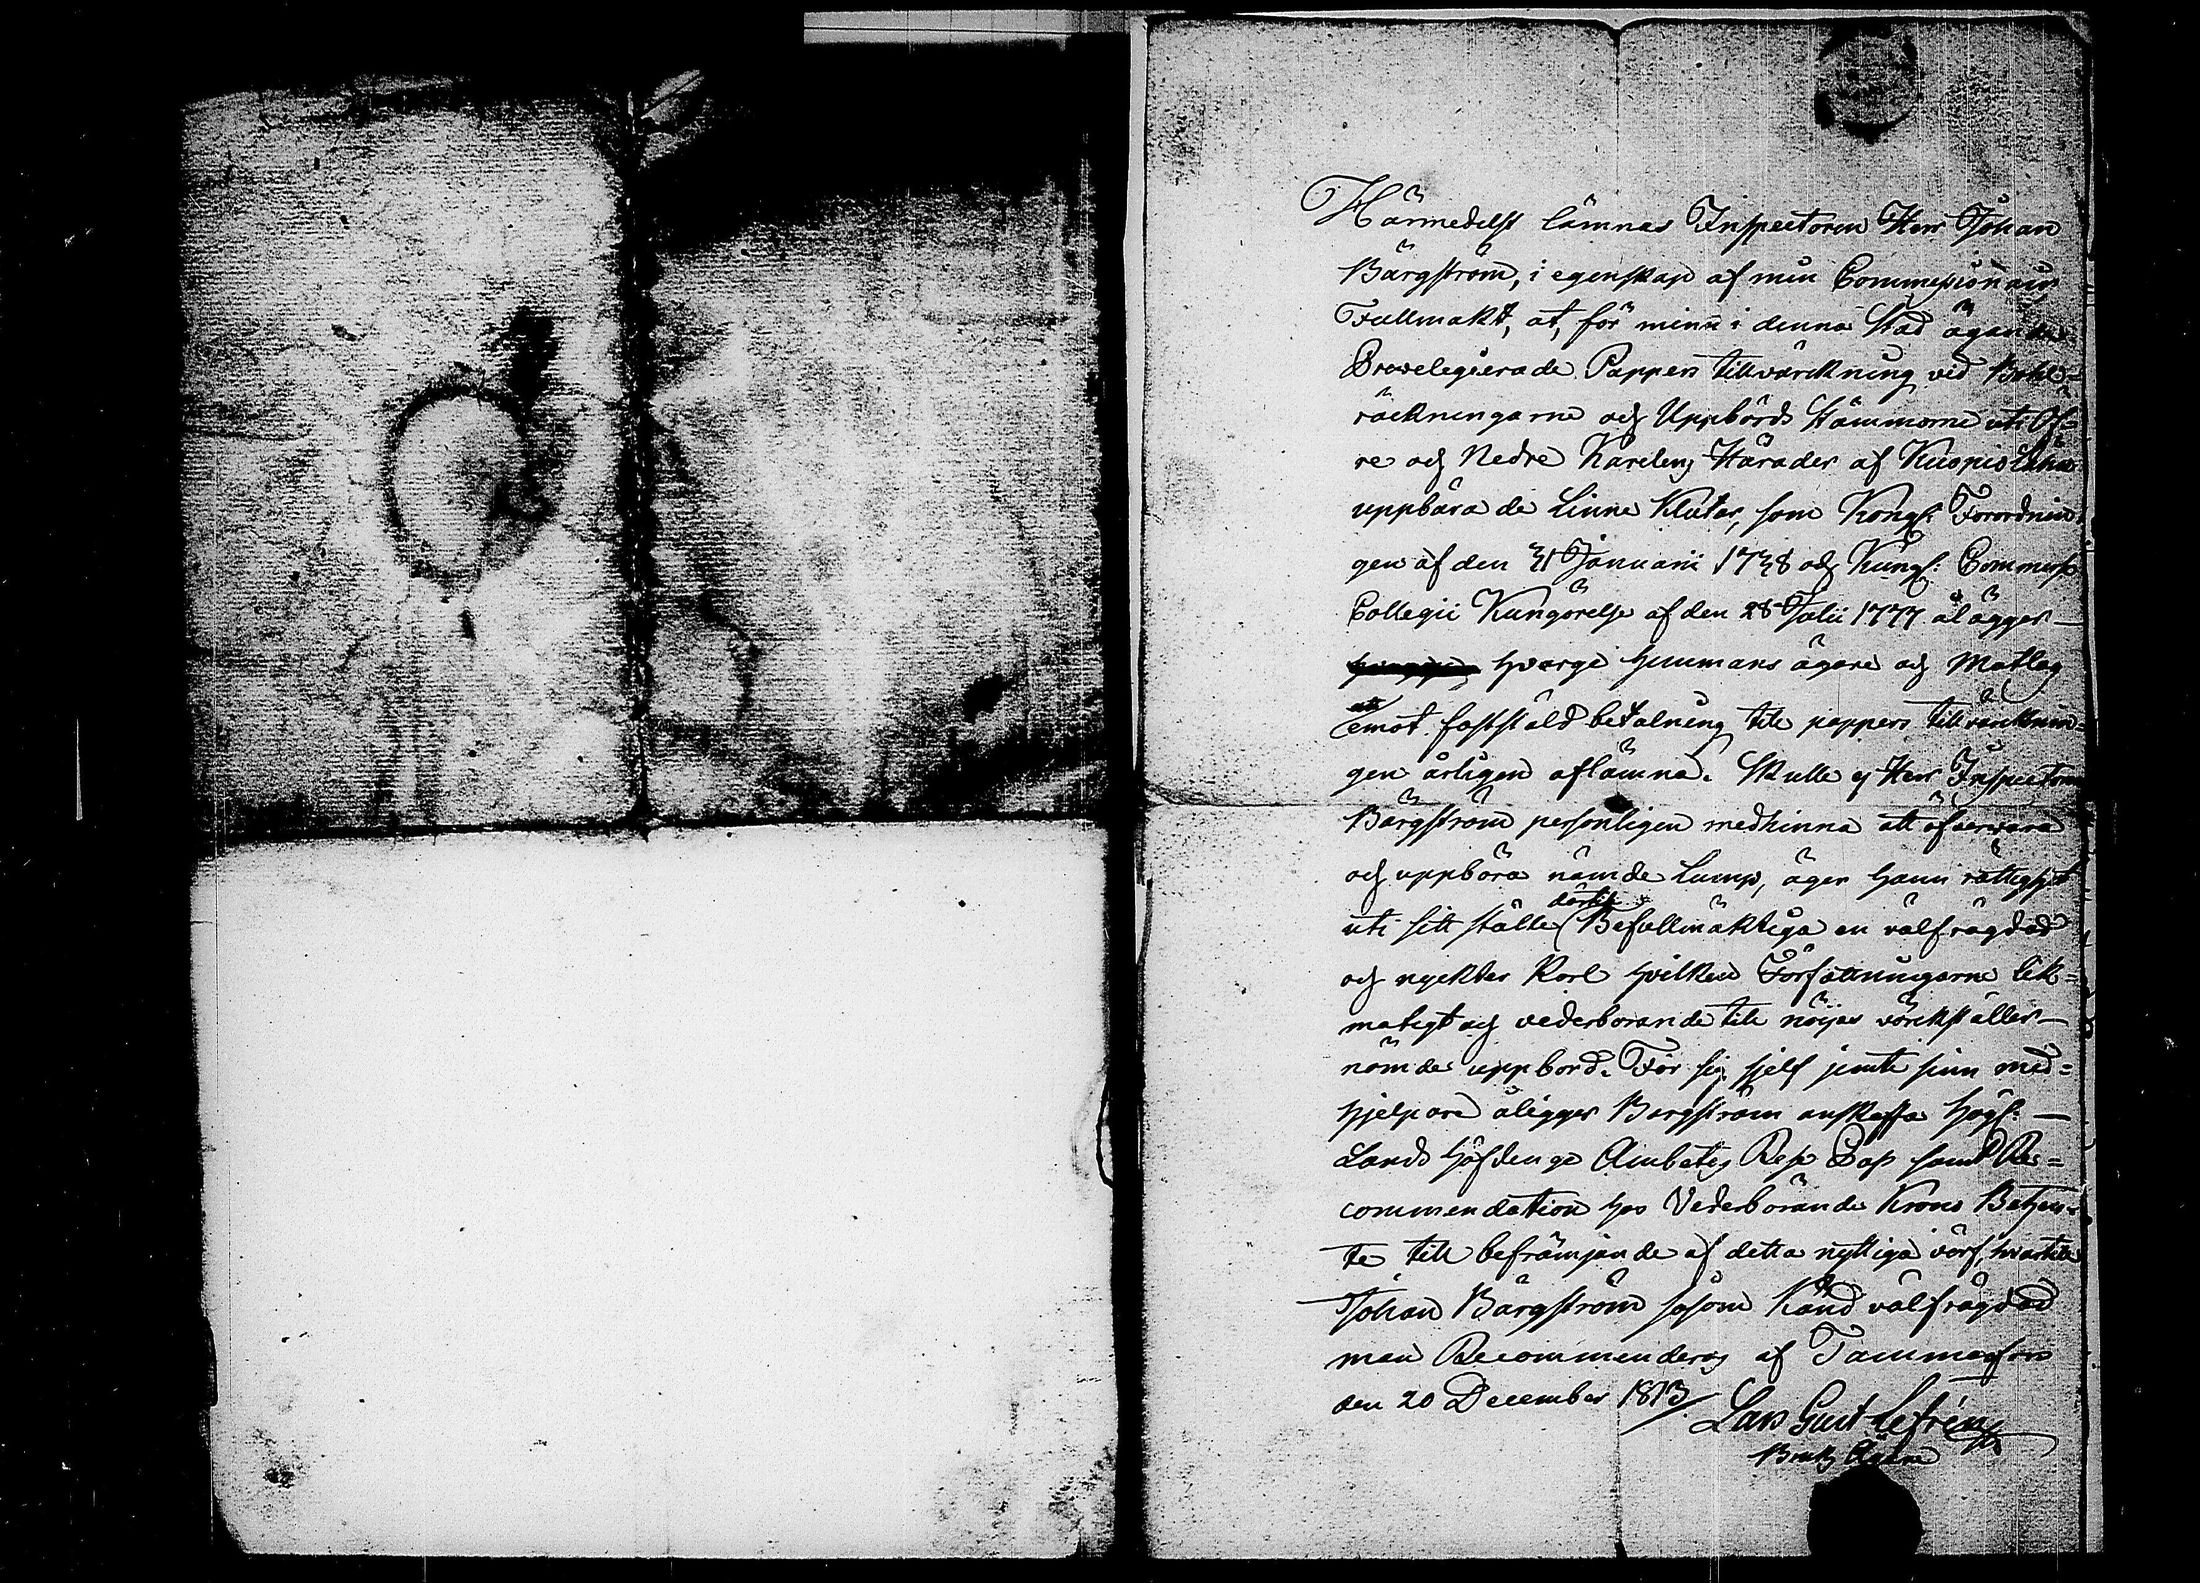 Härmedelst lämnas Inspectoren Herr Johan
Bärgström, i egenskap af min Commissionair,
Fullmakt, at, för minn i denna Stad ägande
Prevelegierade Pappers tillvärckning vid Bohl=
räckningarne och Uppbörds Stämmorne uti Öf=
re och Nedre Karelens Härader af Kuopio Lähn
uppbära de Linne Klutar, som Kongl: Forordnin
gen af den 31 Januarii 1738 och Kungl: Commerss
Collegii Kungörelse af den 28 Julii 1777 ålägger
hvarge Hemmans ägare och Matlag
att
emot fastställd betalning till pappers tillvärcknin=
gen årligen aflämna. Skulle ej Herr Inspectoren
Bärgström personligen medhinna att öfvervara
och uppbära nämde Lump, äger Hann rättighet
uti sitt ställe Befullmäktiga en välfrägdad
dertill
och nyckter Karl hvilken Författningarne lik=
matigt och vederborande till nöijes värckställer
nämde uppbord. För sig sjelf jemte sinn med=
hjelpare åligger Bergström anskaffa Högl:
Lands Höfdinge Embetes Rese Pass samt Re=
commendation hos Vederbörande Krono Betjen=
te till befrämjande af detta nyttiga värf, hvartill
Johan Bärgström såsom Känd välfrägdad
man Recommenderas af Tammerfors
den 20 December 1813
Lars Gust Lefrén
Bruks Ägare